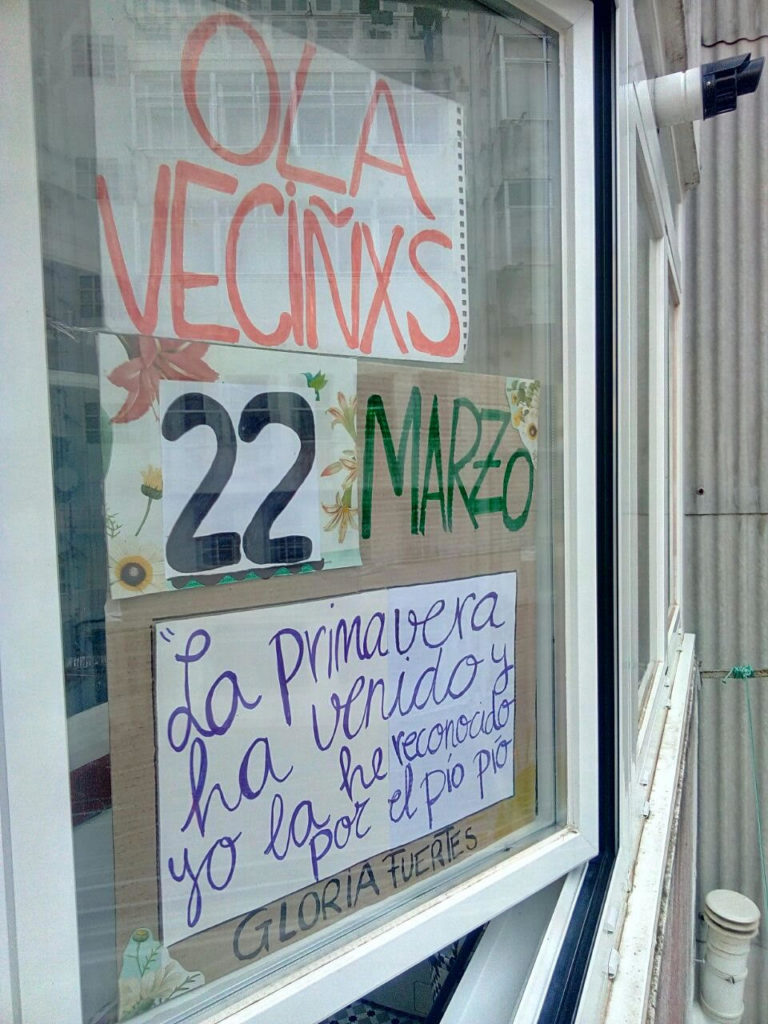 OLA
VECIÑXS
22 MARZO
"La primavera
ha venido y
yo la he reconocido
por el pío pío
GLORIA FUERTES